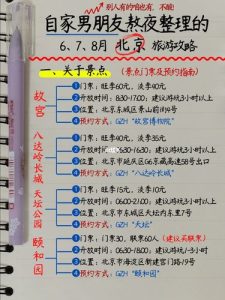 别人有的咱也有,不能
自家男朋友熬夜整理的
6、7、8月 北京 旅游攻略
一、关于景点 (景点门票及预约指南)
故宫
①门票:旺季60元,淡季40元
②开放时间:8:30-17:00;建议游玩3小时以上
③位置:北京东城区景山前街4号
④预约方式:GZH“故宫博物院”
八达岭长城
①门票:旺季40元,淡季35元
②开放时间:6:30-16:30;建议游玩3小时以上
③位置:北京市延庆区G6京藏高速58号出口
④预约方式:GZH“八达岭长城”
天坛公园
①门票:旺季15元,淡季10元
②开放时间:06:00-21:00;建议游玩3小时以上
③位置:北京市东城区天坛内东里7号
④预约方式:GZH“天坛”
颐和园
①门票:门票30,联票60人(建议买联票)
②开放时间:06:30-18:00,建议游玩3小时以上
③位置:北京市海淀区新建宫门路19号
④预约方式:GZH“颐和园”